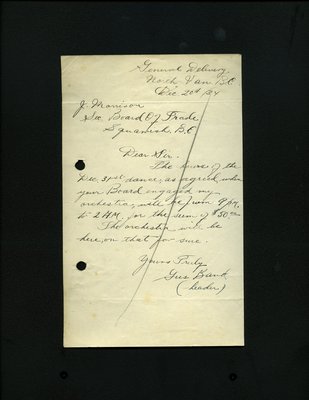 General Delivery
North Van B.C
Dec 20th/34
J. Morrison
Sec Board Of Trade
Squamish, B.C
Dear Sir.
The hours of the
Dec 31st dance, as agreed, when
your Board engaged my
orchestra, will be from 9 P.M.
to 2 A.M. for the sum of $50.00
The orchestra will be
here, on that for sure.
Yours Truly
Gus
(Leader)